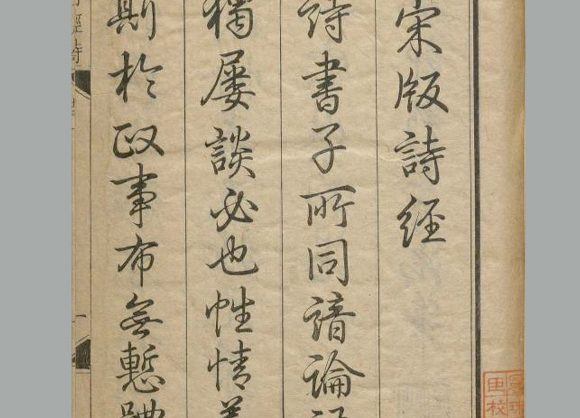 宋版詩經
詩書子所同諳論
獨屢談必也性情
斯於政事布無慙